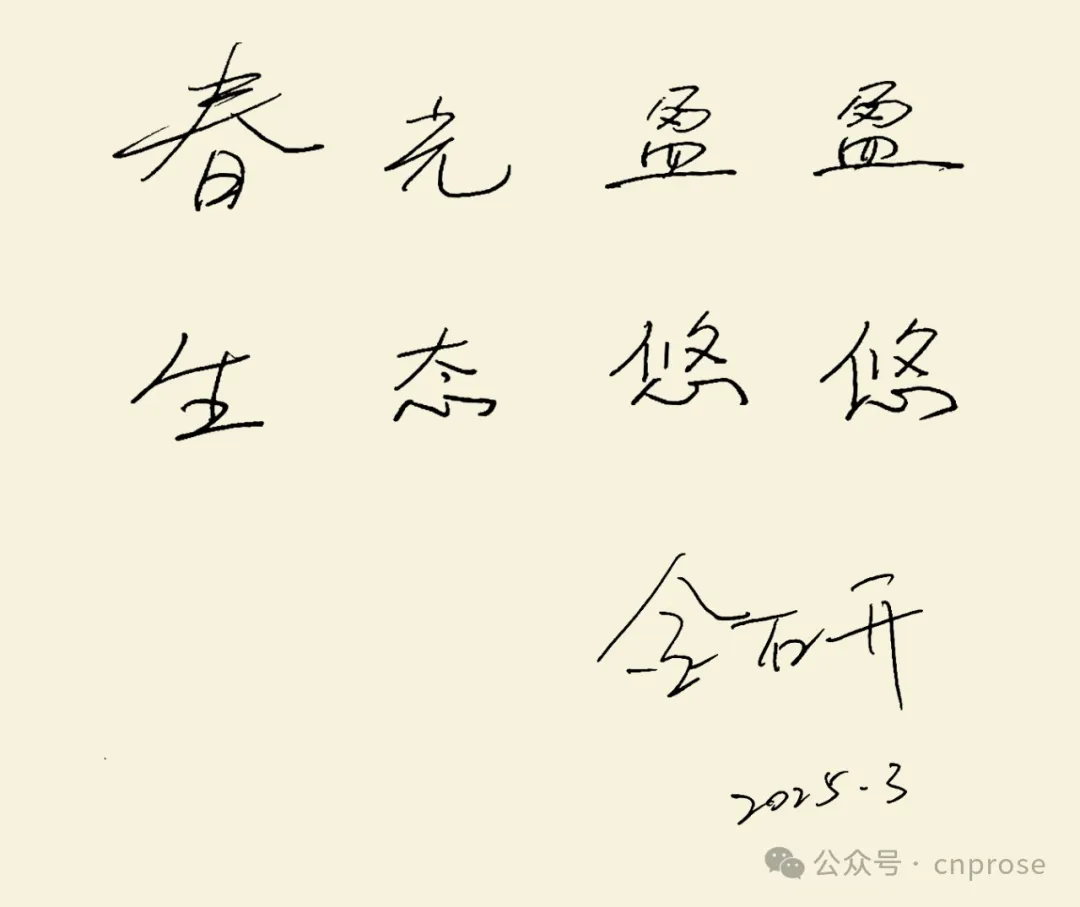 春光盈盈
生态悠悠
金石开
2025.3
公众号· cnprose